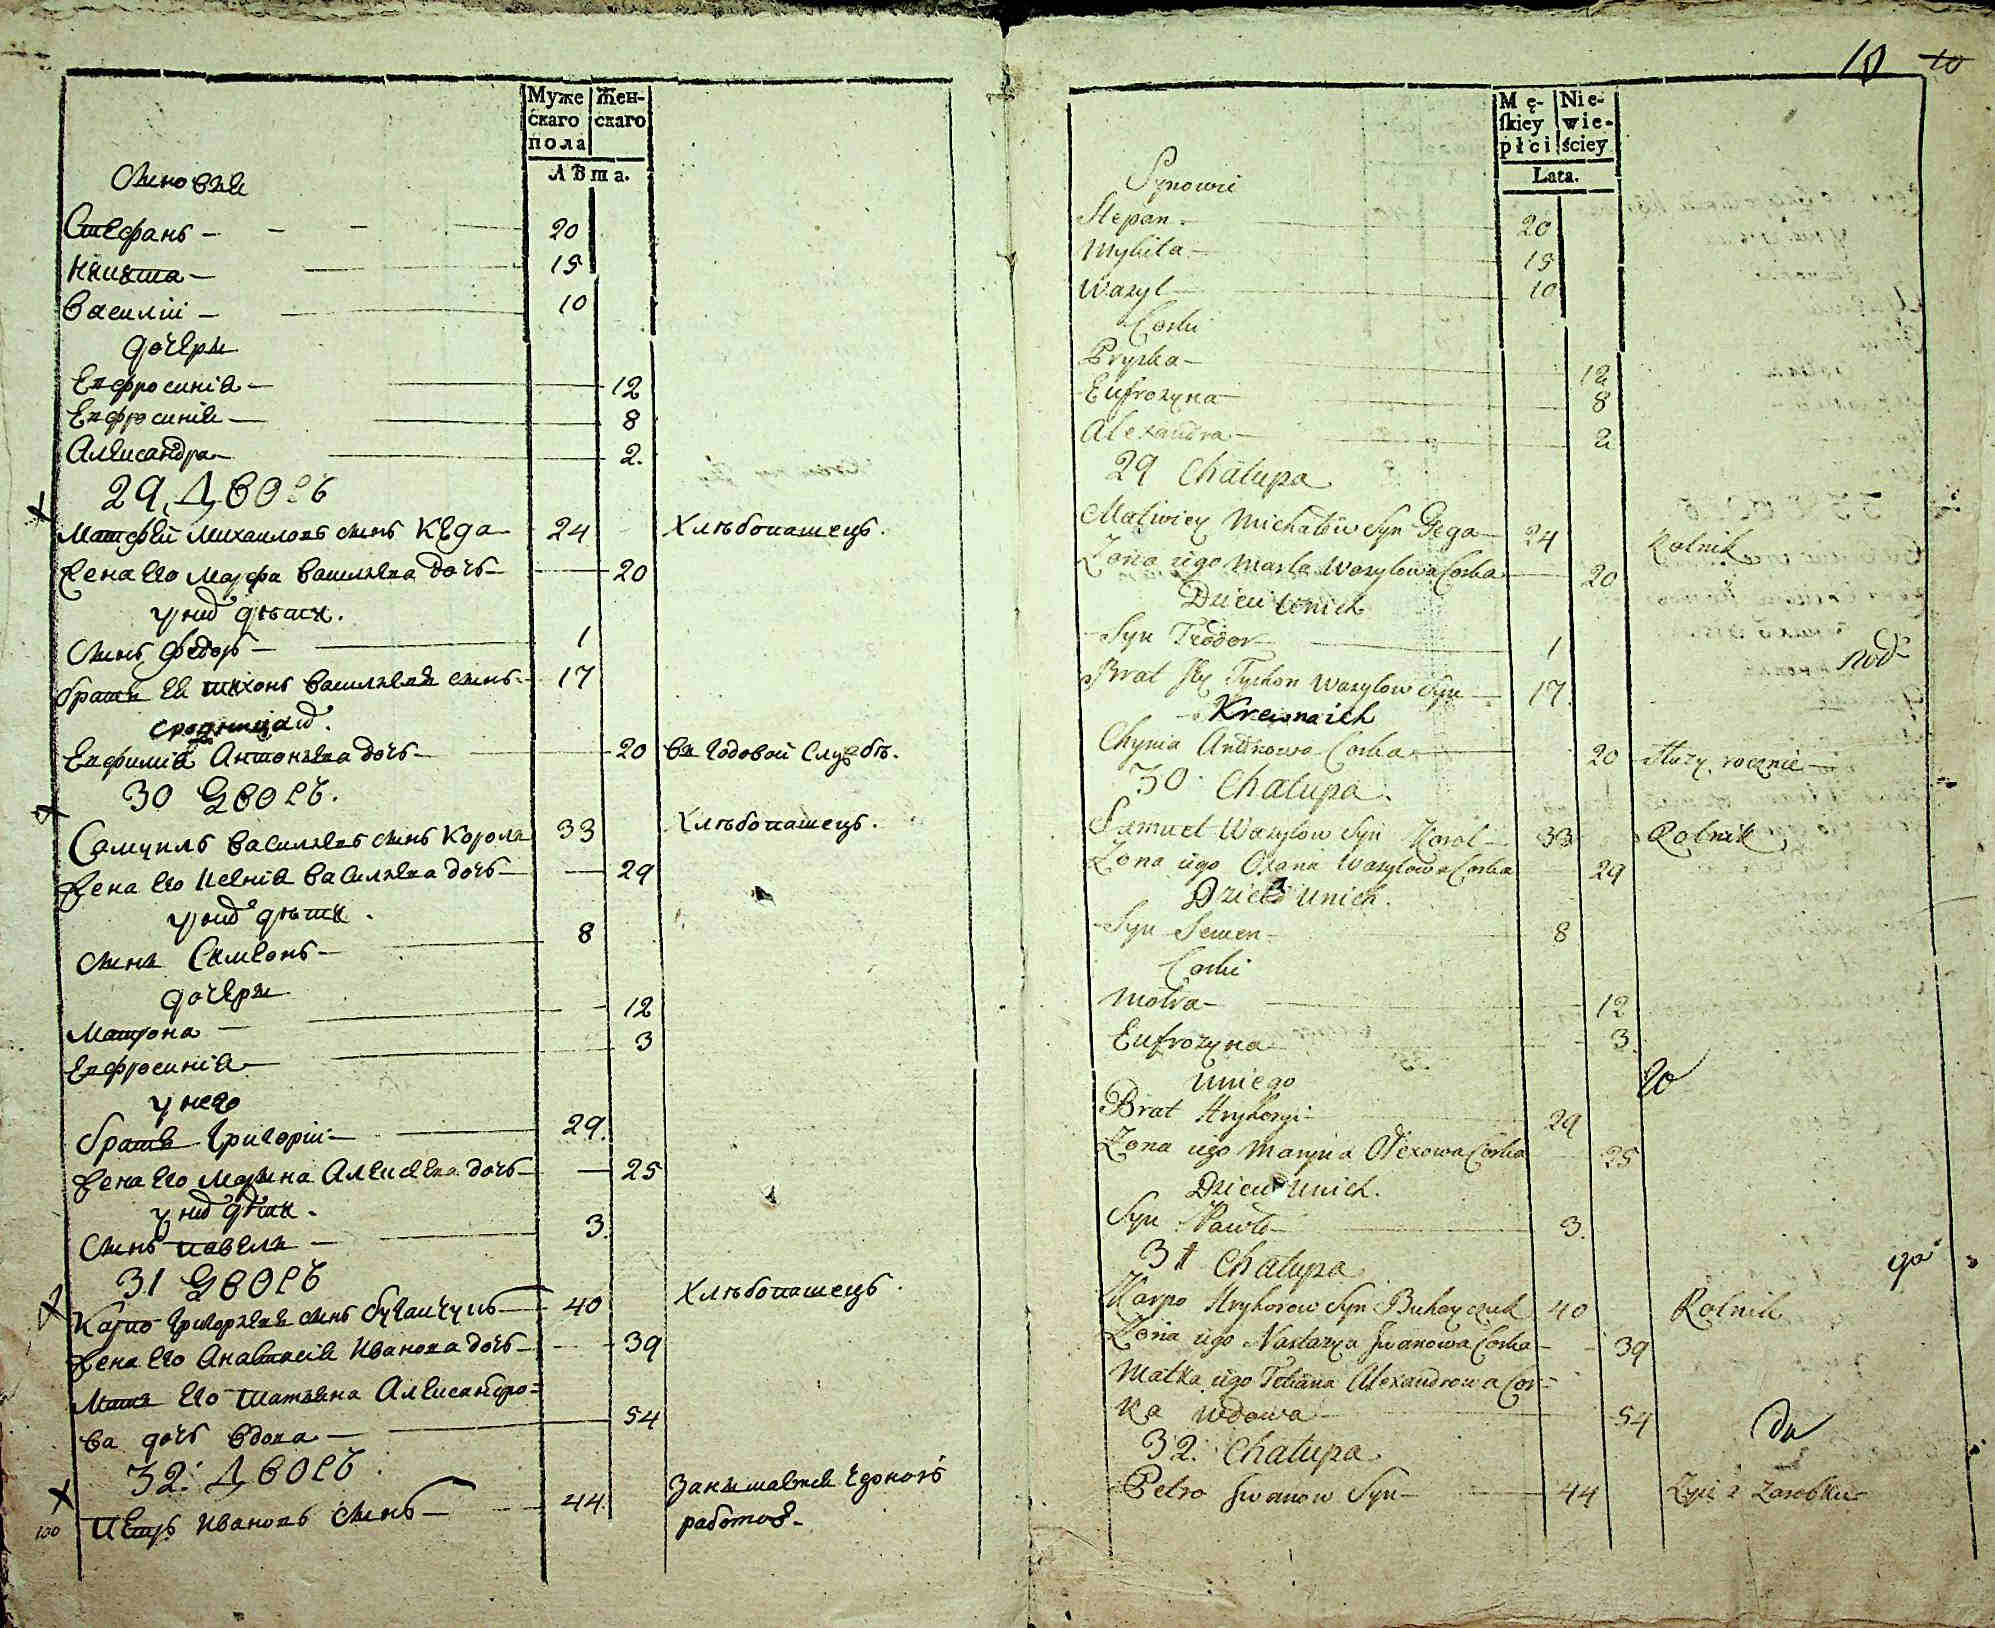 Муже
скаго
пола
Жен-
скаго
Лѣта.
Синовья
Стефанъ — 20
Никита — 15
Василій — 10
дочери
Евфросинія — 12
Евфросинія — 8
Александра — 2.
29 Дворъ
Матфей Михаиловъ синъ Кеда — 24 Хлѣбопашецъ.
Жена его Марфа Васильева дочь — 20
у них дѣти.
синъ Федоръ — 1
братъ ея Тихонъ Васильевъ синъ — 17
сродница их.
Евфимія Антоньева дочь — 20 въ годовой службѣ.
30 Дворъ.
Самуилъ Васильевъ синъ Король 33 Хлѣбопашецъ.
Жена его Ксенія Васильева дочь — 29
у них дѣти.
синъ Симеонъ — 8
дочери
Матрона — 12
Евфросинія — 3
у него
братъ Григорій — 29.
Жена его Марина Алексеева дочь — 25
у них дѣти.
синъ Павелъ — 3.
31 Дворъ
Карпо Григорьевъ синъ Бугайчукъ — 40 Хлѣбопашецъ.
Жена его Анастасія Иванова дочь — 39
Мать его Татьяна Александро=
ва дочь вдова — 54
32. Дворъ.
Петръ Ивановъ синъ — 44. Занимается
работою.
100
10 10
Mę-
ſkiey
płci
Nie-
wie-
ściey
Lata.
Synowie
Stepan — 20
Mykita — 15
Wasyl — 10
Corki
Pryska — 12
Eufrozyna — 8
Alexandra — 2
29 Chałupa
Matwiey Michałow Syn Gega — 24 Rolnik
Zona iego Marta Wasylowa Corka — 20
Dzieci u nich
Syn Teodor — 1
Brat Jey Tychon Wasylow Syn — 17.
Krewna ich
Chymia Andrzowa Corka — 20 Służy rocznie —
30 Chałupa.
Samuel Wasylow Syn Korol — 33 Rolnik
Zona iego Oxenia Wasylowa Corka 29
Dzieci u nich.
Syn Semen — 8
Corki
Motra — 12
Eufrozyna — 3.
u niego
Brat Hryhoryi — 29
Zona iego Maryna Olexowa Corka 25
Dzieci u nich.
Syn Pawło — 3.
31 Chałupa
Karpo Hryhorow Syn Buhayczuk 40 Rolnik
Zona iego Nastazya Jwanowa Corka — 39
Matka iego Tetiana Alexandrowa Cor=
ka wdowa — 54
32. Chałupa
Petro Jwanow Syn — 44 Zyie z Zarobku